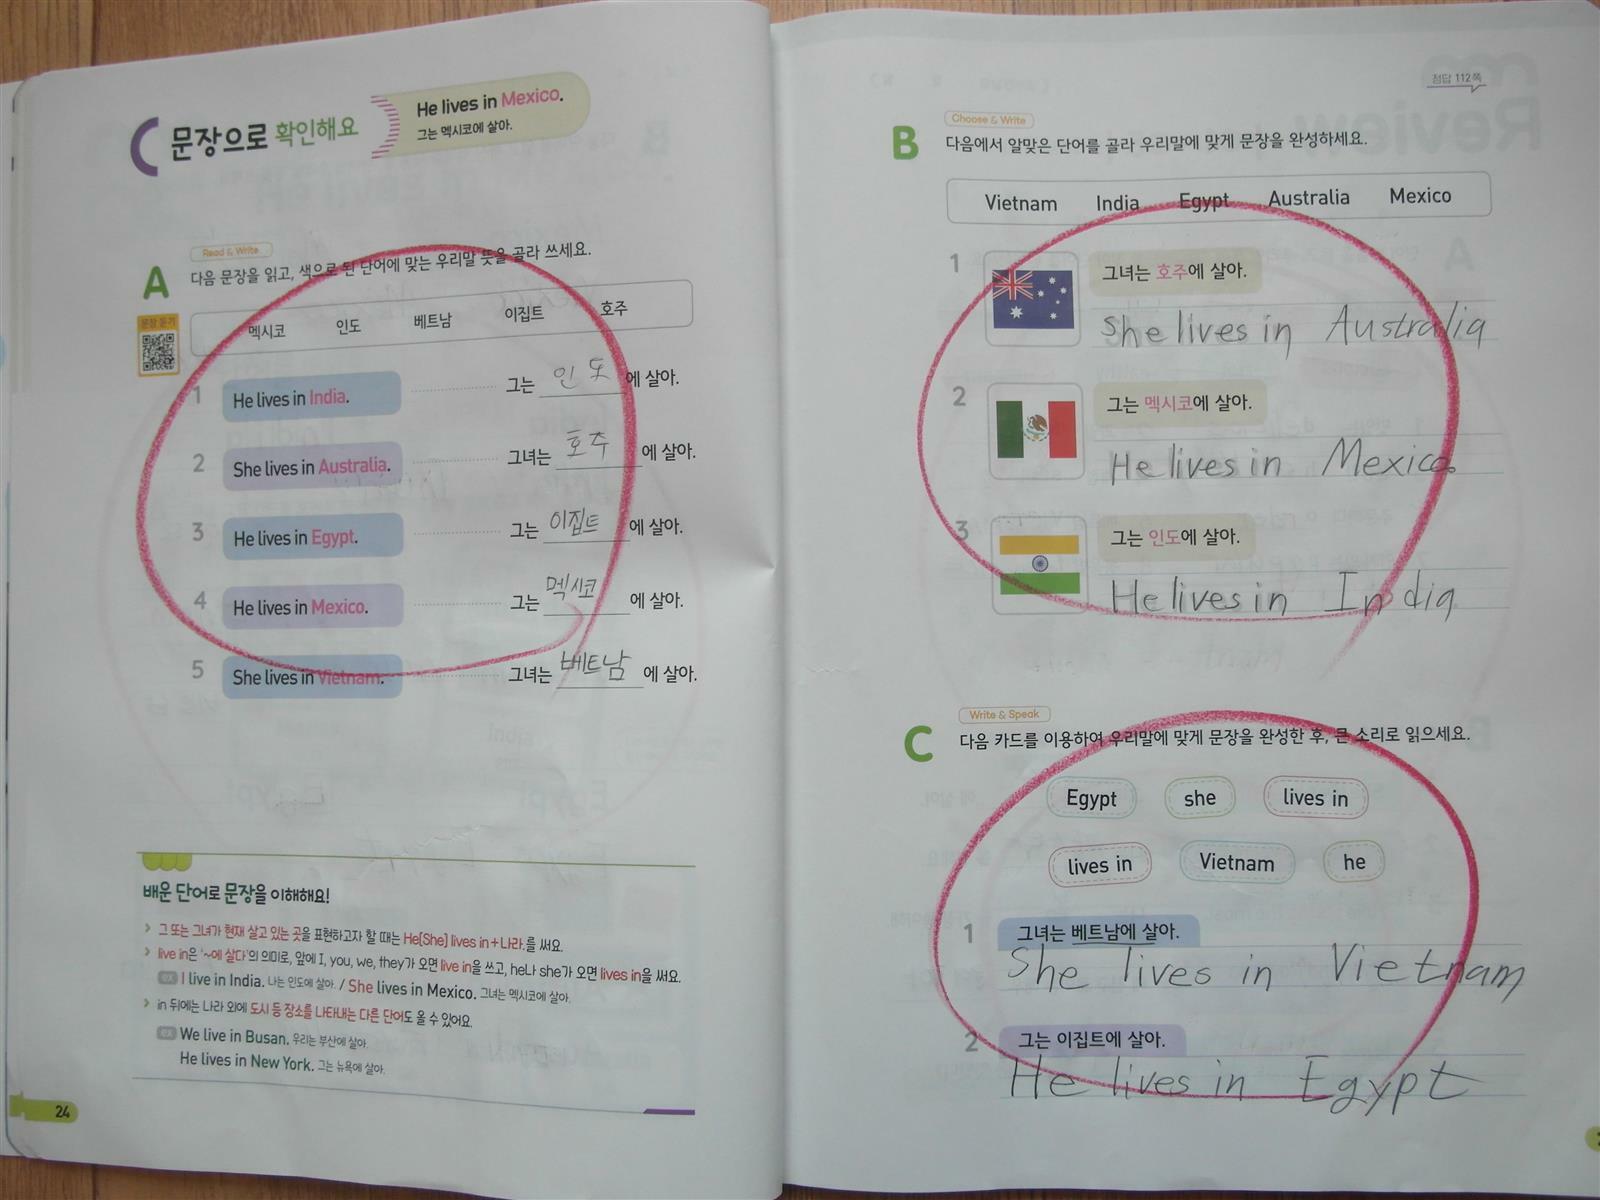 문장으로 확인해요
He lives in Mexico.
그는 멕시코에 살아.
Read & Write
A 다음 문장을 읽고, 색으로 된 단어에 맞는 우리말 뜻을 골라 쓰세요.
문장 듣기
멕시코 인도 베트남 이집트 호주
1 He lives in India. 그는 인도에 살아.
2 She lives in Australia. 그녀는 호주에 살아.
3 He lives in Egypt. 그는 이집트에 살아.
4 He lives in Mexico. 그는 멕시코에 살아.
5 She lives in Vietnam. 그녀는 베트남에 살아.
배운 단어로 문장을 이해해요!
> 그 또는 그녀가 현재 살고 있는 곳을 표현하고자 할 때는 He(She) lives in+나라.를 써요.
> live in은 '~에 살다'의 의미로, 앞에 I, you, we, they가 오면 live in을 쓰고, he나 she가 오면 lives in을 써요.
ex I live in India. 나는 인도에 살아. / She lives in Mexico. 그녀는 멕시코에 살아.
> in 뒤에는 나라 외에 도시 등 장소를 나타내는 다른 단어도 올 수 있어요.
ex We live in Busan. 우리는 부산에 살아.
He lives in New York. 그는 뉴욕에 살아.
24
정답 112쪽
Choose & Write
B 다음에서 알맞은 단어를 골라 우리말에 맞게 문장을 완성하세요.
Vietnam India Egypt Australia Mexico
1 그녀는 호주에 살아.
She lives in Australia
2 그는 멕시코에 살아.
He lives in Mexico.
3 그는 인도에 살아.
He lives in India.
Write & Speak
C 다음 카드를 이용하여 우리말에 맞게 문장을 완성한 후, 큰 소리로 읽으세요.
Egypt she lives in
lives in Vietnam he
1 그녀는 베트남에 살아.
She lives in Vietnam
2 그는 이집트에 살아.
He lives in Egypt